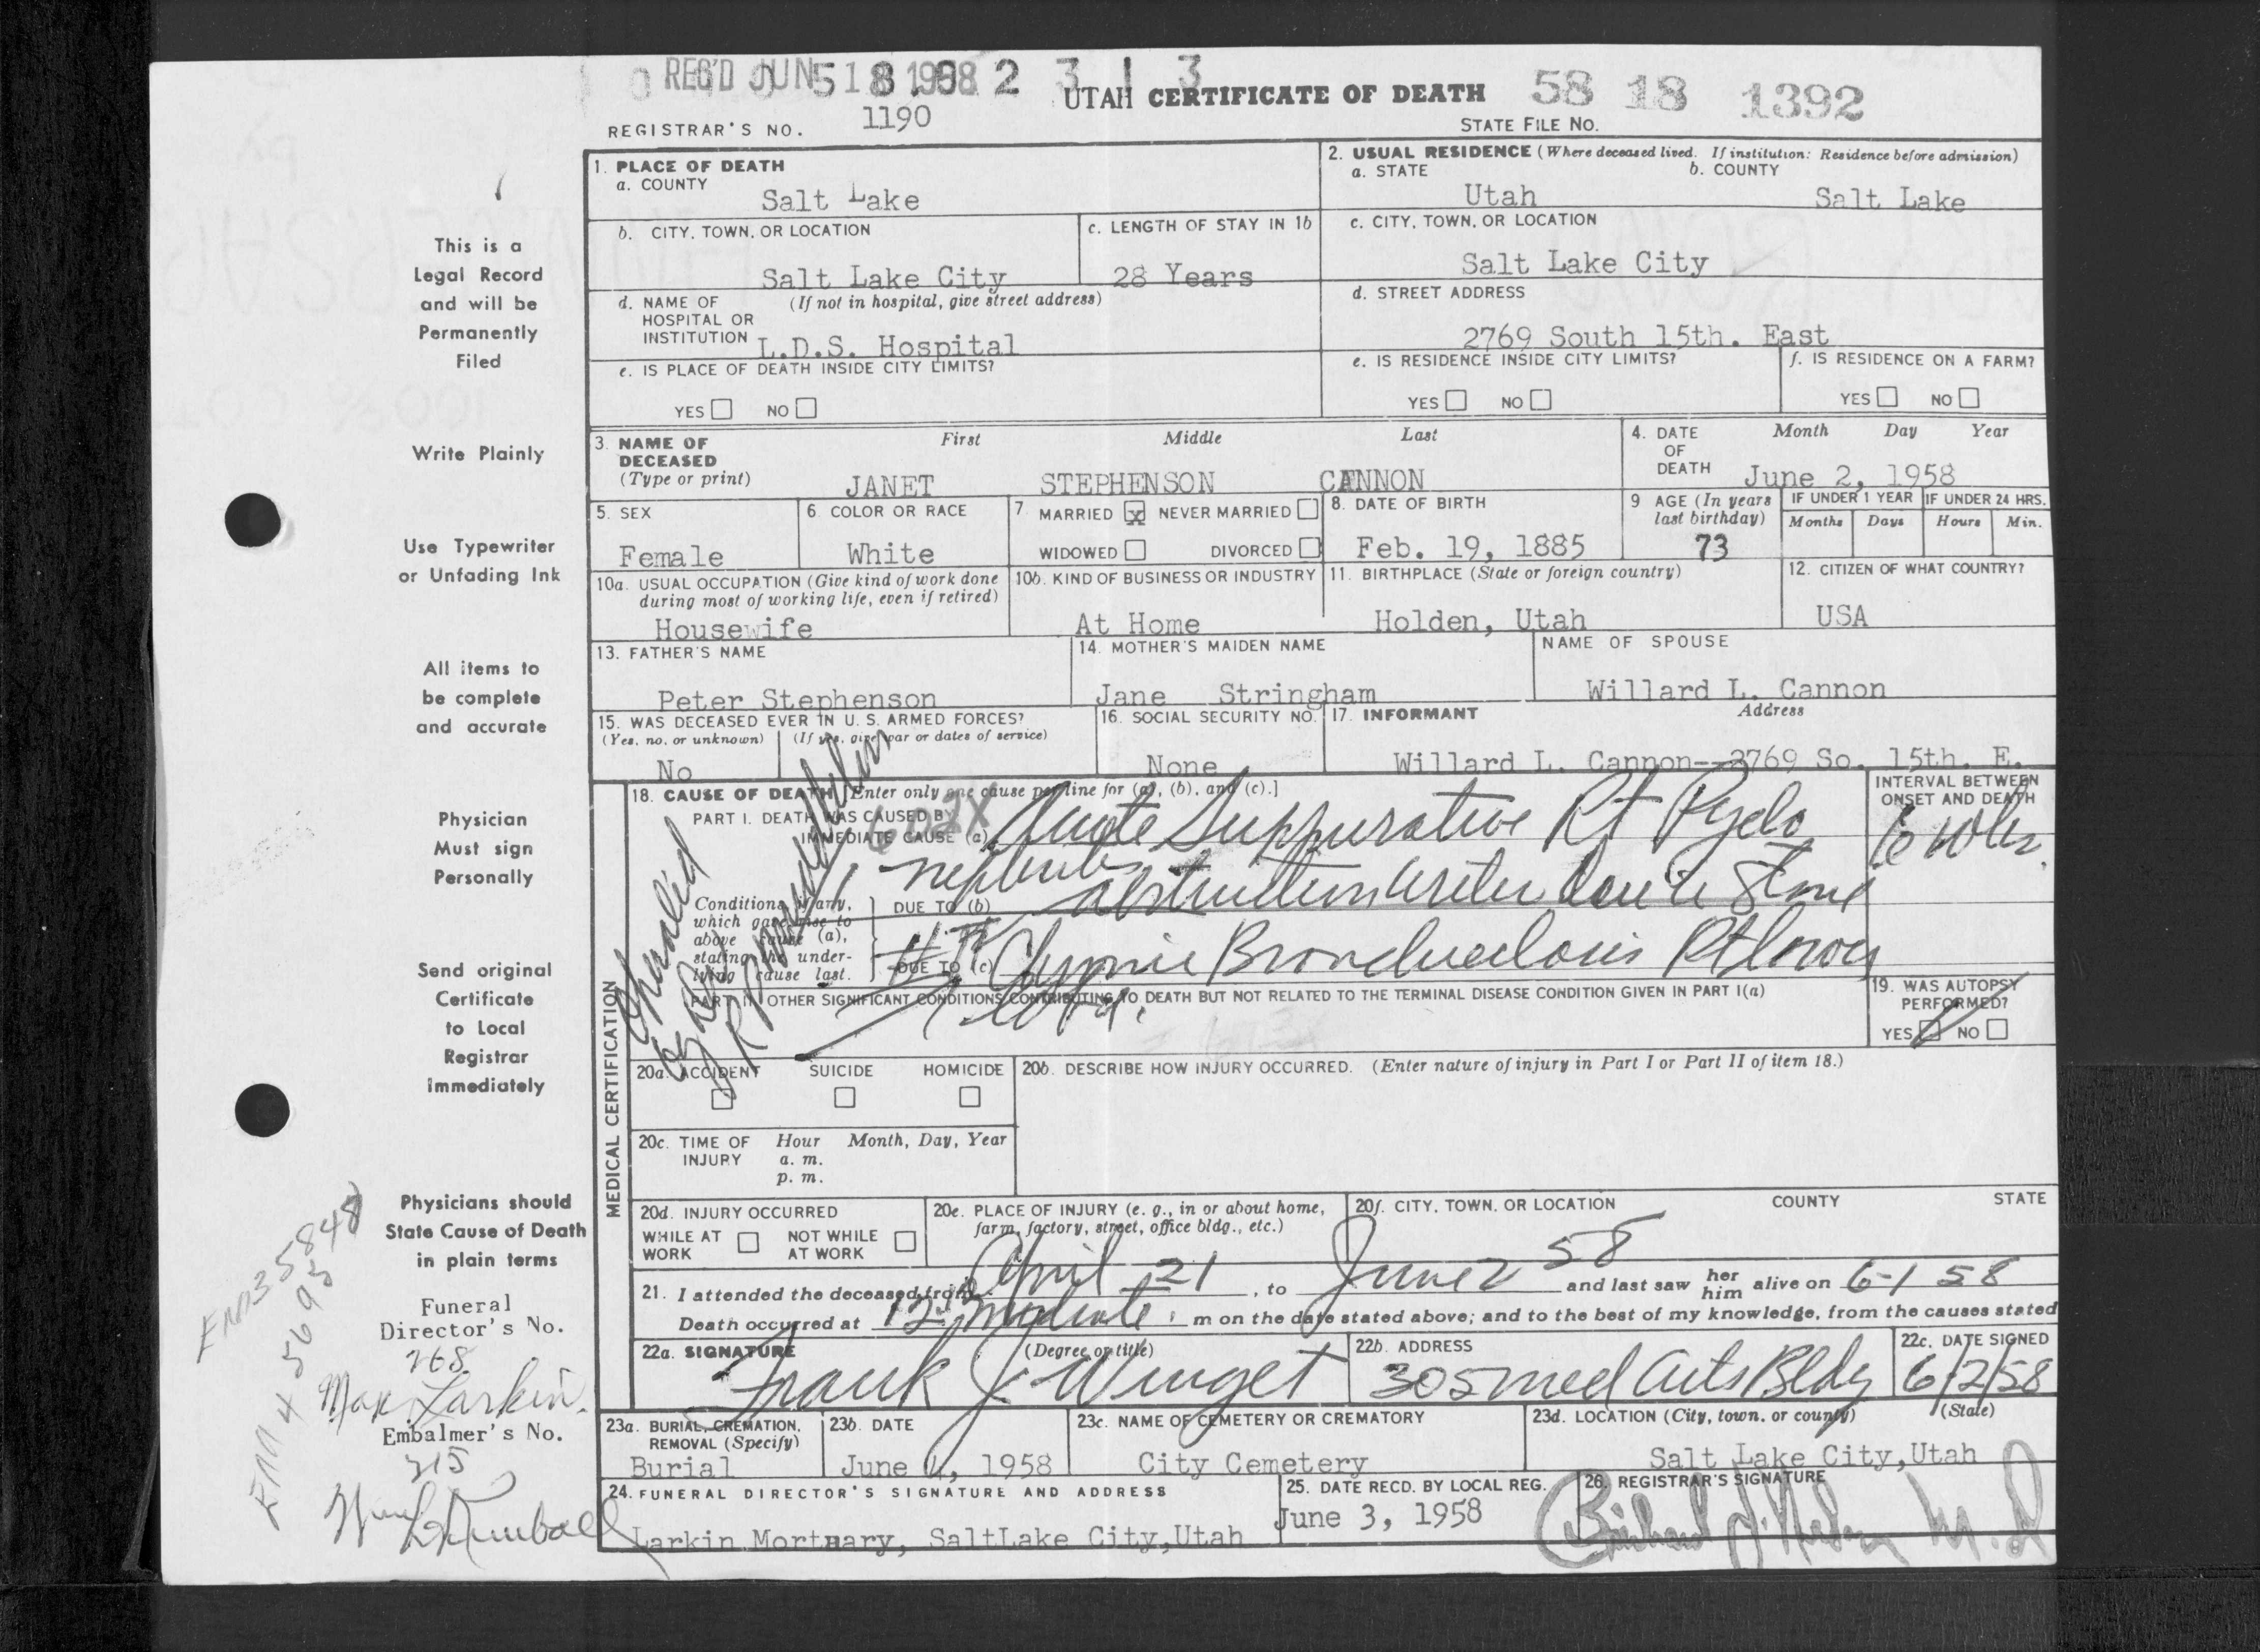 REG'D JUN 5 1958 2 3 1 3
UTAH CERTIFICATE OF DEATH 58 18 1392
REGISTRAR'S NO. 1190 STATE FILE NO.
1. PLACE OF DEATH
a. COUNTY Salt Lake
2. USUAL RESIDENCE (Where deceased lived. If institution: Residence before admission)
a. STATE Utah b. COUNTY Salt Lake
b. CITY, TOWN, OR LOCATION Salt Lake City
c. LENGTH OF STAY IN 1b 28 Years
c. CITY, TOWN, OR LOCATION Salt Lake City
d. NAME OF HOSPITAL OR INSTITUTION (If not in hospital, give street address) L.D.S. Hospital
d. STREET ADDRESS 2769 South 15th. East
e. IS PLACE OF DEATH INSIDE CITY LIMITS?
YES NO
e. IS RESIDENCE INSIDE CITY LIMITS?
YES NO
f. IS RESIDENCE ON A FARM?
YES NO
3. NAME OF DECEASED (Type or print)
First Middle Last
JANET STEPHENSON CANNON
4. DATE OF DEATH Month Day Year
June 2, 1958
5. SEX Female
6. COLOR OR RACE White
7. MARRIED x NEVER MARRIED
WIDOWED DIVORCED
8. DATE OF BIRTH Feb. 19, 1885
9 AGE (In years last birthday) 73
IF UNDER 1 YEAR Months Days
IF UNDER 24 HRS. Hours Min.
10a. USUAL OCCUPATION (Give kind of work done during most of working life, even if retired)
Housewife
10b. KIND OF BUSINESS OR INDUSTRY At Home
11. BIRTHPLACE (State or foreign country) Holden, Utah
12. CITIZEN OF WHAT COUNTRY? USA
13. FATHER'S NAME Peter Stephenson
14. MOTHER'S MAIDEN NAME Jane Stringham
NAME OF SPOUSE Willard L. Cannon
15. WAS DECEASED EVER IN U. S. ARMED FORCES?
(Yes, no, or unknown) (If yes, give war or dates of service)
No
16. SOCIAL SECURITY NO. None
17. INFORMANT Address
Willard L. Cannon--2769 So. 15th. E.
MEDICAL CERTIFICATION
18. CAUSE OF DEATH [Enter only one cause per line for (a), (b), and (c).]
PART I. DEATH WAS CAUSED BY:
IMMEDIATE CAUSE (a) 602X Acute Suppurative Rt Pyelo
nephritis
INTERVAL BETWEEN ONSET AND DEATH
6 wks.
Conditions, if any, which gave rise to above cause (a), stating the under-lying cause last.
DUE TO (b) obstruction ureter due to stone
DUE TO (c) Chronic Rt lower
PART II. OTHER SIGNIFICANT CONDITIONS CONTRIBUTING TO DEATH BUT NOT RELATED TO THE TERMINAL DISEASE CONDITION GIVEN IN PART I(a)
19. WAS AUTOPSY PERFORMED?
YES NO
20a. ACCIDENT SUICIDE HOMICIDE
20b. DESCRIBE HOW INJURY OCCURRED. (Enter nature of injury in Part I or Part II of item 18.)
20c. TIME OF INJURY Hour Month, Day, Year
a. m.
p. m.
20d. INJURY OCCURRED
WHILE AT WORK NOT WHILE AT WORK
20e. PLACE OF INJURY (e. g., in or about home, farm, factory, street, office bldg., etc.)
20f. CITY, TOWN, OR LOCATION COUNTY STATE
21. I attended the deceased from April 21, to June 2 58 and last saw her him alive on 6-1 58
Death occurred at 12 m on the date stated above; and to the best of my knowledge, from the causes stated
22a. SIGNATURE (Degree or title) Frank J. Winget
22b. ADDRESS 305 Med Arts Bldg
22c. DATE SIGNED 6/2/58
23a. BURIAL, CREMATION, REMOVAL (Specify) Burial
23b. DATE June 4, 1958
23c. NAME OF CEMETERY OR CREMATORY City Cemetery
23d. LOCATION (City, town, or county) (State)
Salt Lake City, Utah
24. FUNERAL DIRECTOR'S SIGNATURE AND ADDRESS
Larkin Mortuary, SaltLake City, Utah
25. DATE RECD. BY LOCAL REG. June 3, 1958
26. REGISTRAR'S SIGNATURE
M.D.
This is a
Legal Record
and will be
Permanently
Filed
Write Plainly
Use Typewriter
or Unfading Ink
All items to
be complete
and accurate
Physician
Must sign
Personally
Send original
Certificate
to Local
Registrar
immediately
Physicians should
State Cause of Death
in plain terms
Funeral
Director's No.
268
Max Larkin
Embalmer's No.
215